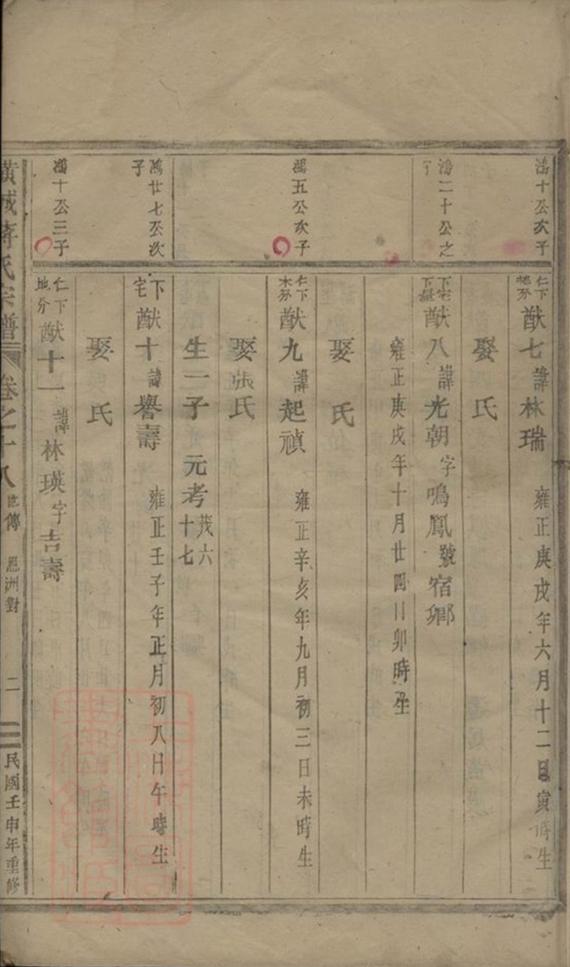 鴻十公次子
仁下
猷七諱林瑞 雍正庚戌年六月十二日寅時生
娶 氏
鴻二十公之子
下宅
猷八諱光朝字鳴鳳號宿鄉
雍正庚戌年十月廿四日卯時生
娶 氏
鴻五公次子
仁下
猷九諱起禎 雍正辛亥年九月初三日未時生
娶張氏
生一子 元考 茂六十七
鴻廿七公次子
下宅 猷十諱譽壽 雍正壬子年正月初八日午時生
娶 氏
鴻十公三子
仁下地分
猷十一諱林瑛字吉壽
橫城蔣氏宗譜 卷之十八 世傳 恩洲對 二 民國壬申年重修